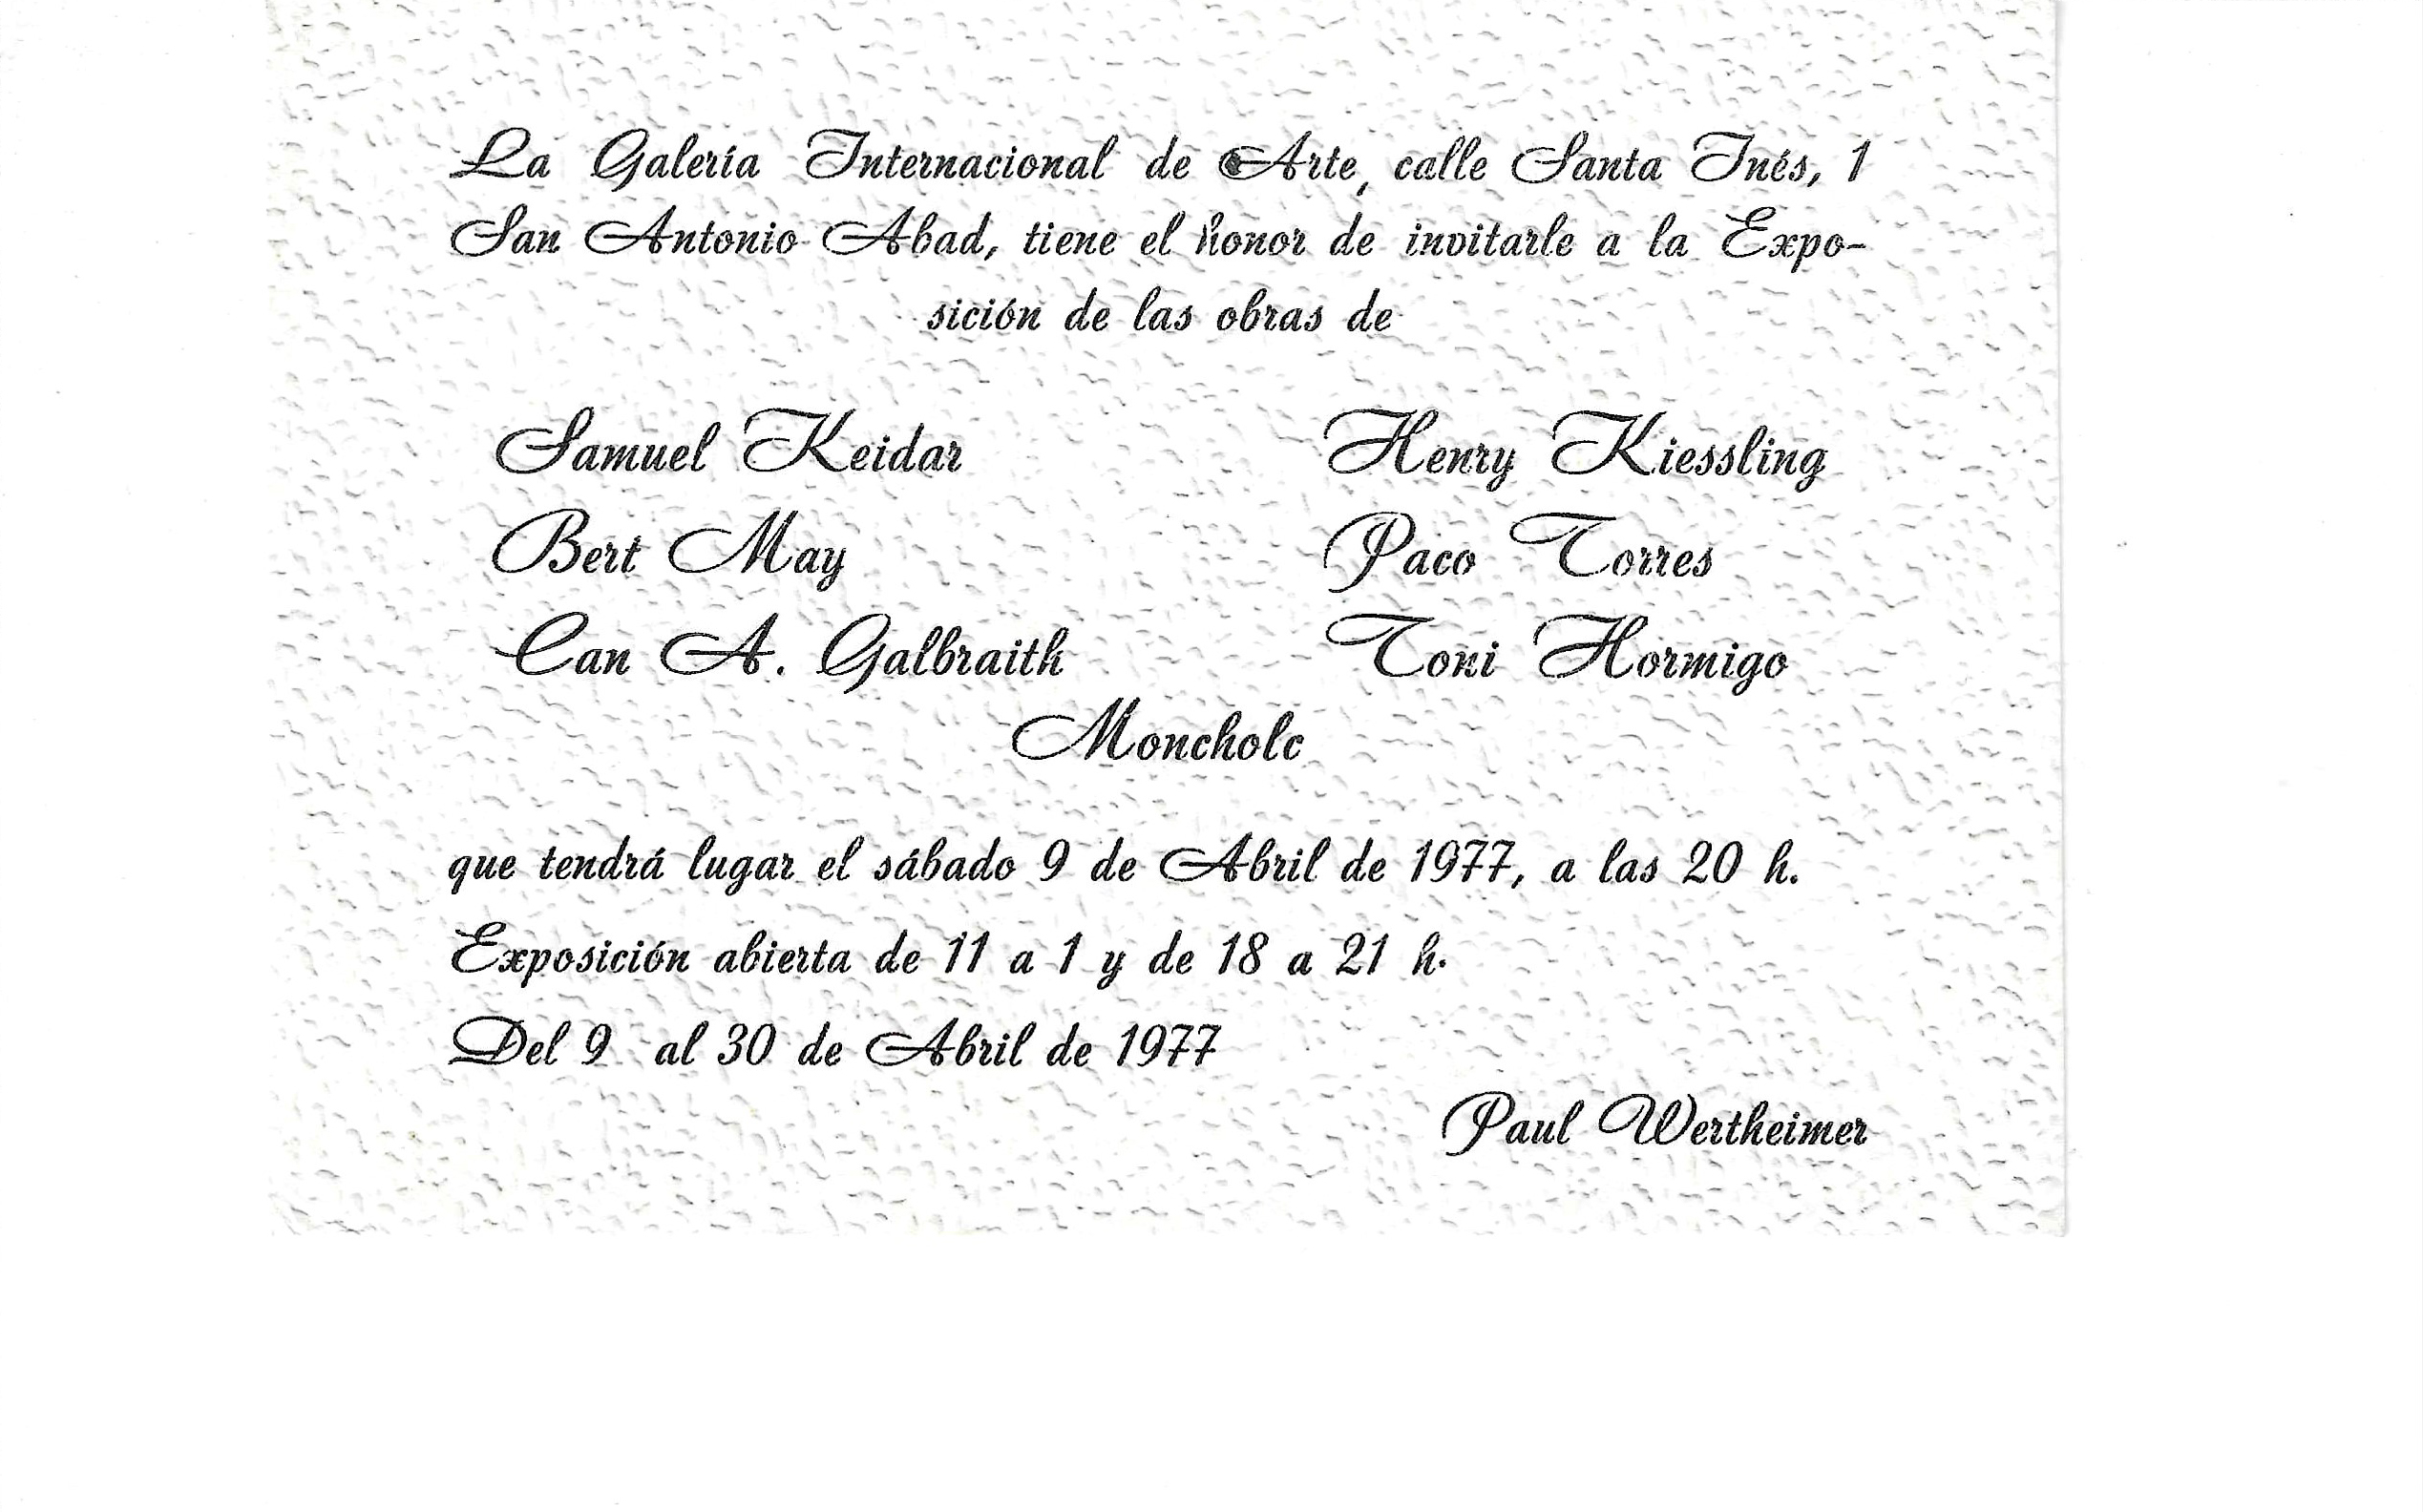 La Galería Internacional de Arte, calle Santa Inés, 1
San Antonio Abad, tiene el honor de invitarle a la Expo-
sición de las obras de
Samuel Keidar
Henry Kiessling
Bert May
Paco Torres
Can A. Galbraith
Toni Hormigo
Moncholc
que tendrá lugar el sábado 9 de Abril de 1977, a las 20 h.
Exposición abierta de 11 a 1 y de 18 a 21 h.
Del 9 al 30 de Abril de 1977
Paul Wertheimer